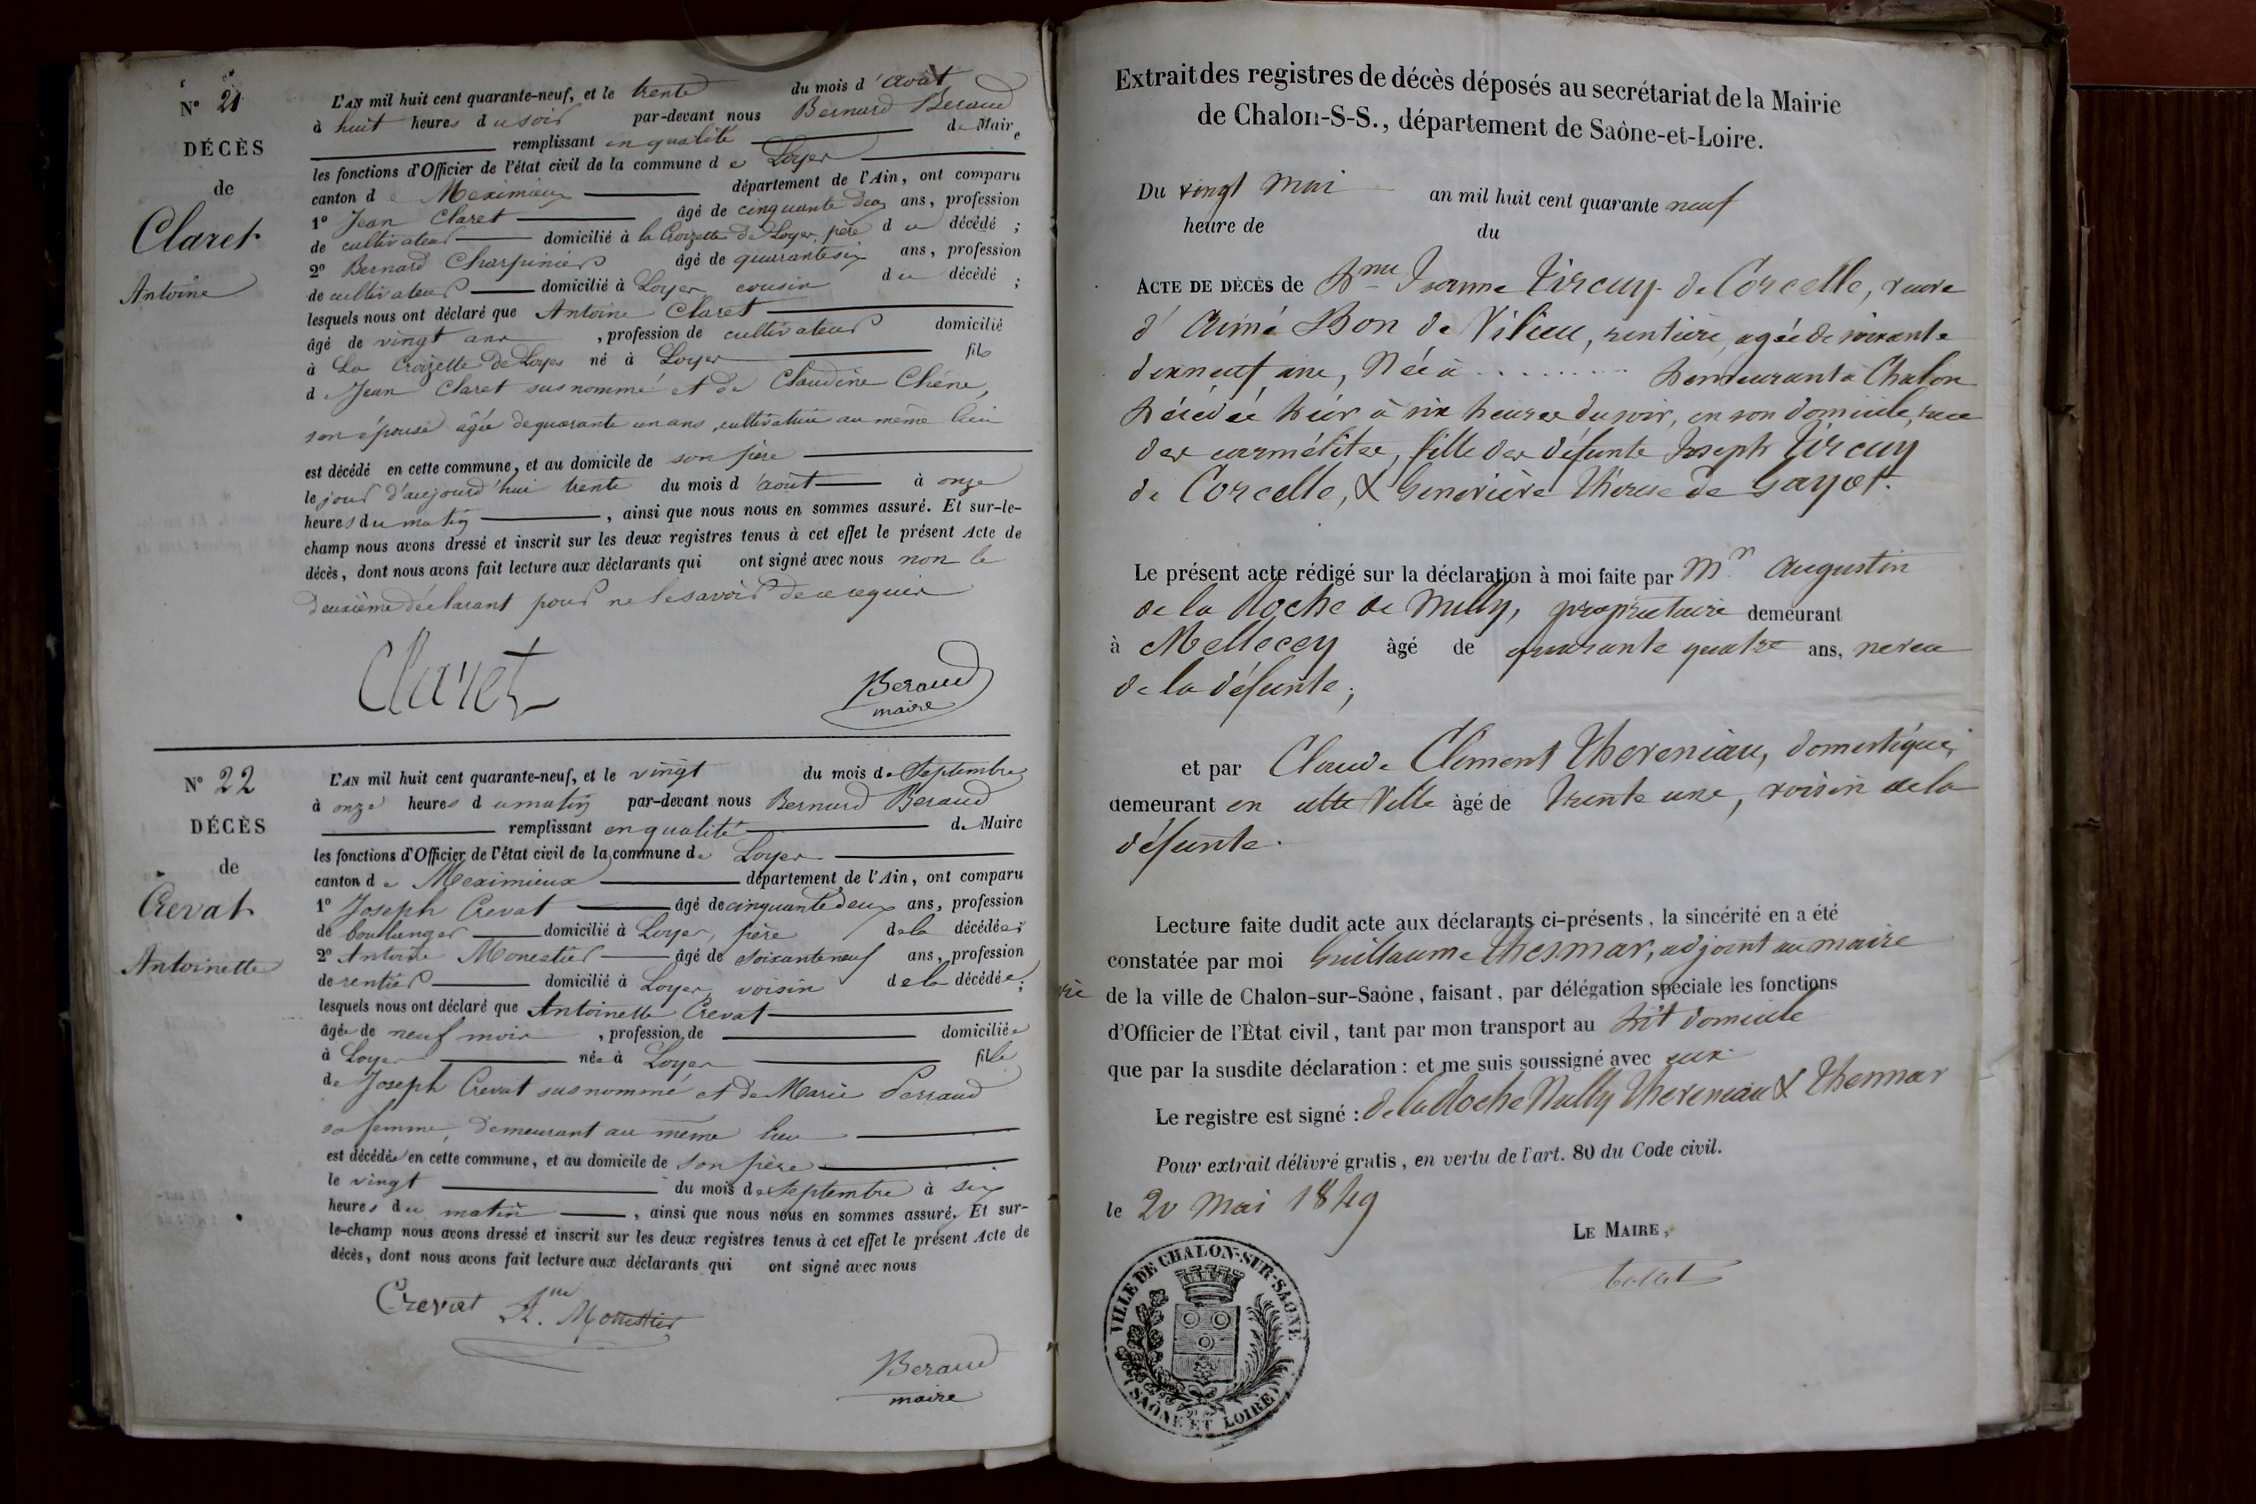 N° 21
DÉCÈS
de
Claret
Antoine
L'AN mil huit cent quarante-neuf, et le trente du mois d'août
à huit heures du soir par-devant nous Bernard Beraud
remplissant en qualité de Maire
les fonctions d'Officier de l'état civil de la commune de Loyes
canton de Meximieux département de l'Ain, ont comparu
1° Jean Claret âgé de cinquante deux ans, profession
de cultivateur domicilié à la Croizette de Loyes, père du décédé ;
2° Bernard Charpinier âgé de quarante six ans, profession
de cultivateur domicilié à Loyes, cousin du décédé ;
lesquels nous ont déclaré que Antoine Claret
âgé de vingt ans, profession de cultivateur domicilié
à La Croizette de Loyes né à Loyes fils
de Jean Claret susnommé et de Claudine Chêne,
son épouse âgée de quarante un ans, cultivatrice au même lieu
est décédé en cette commune, et au domicile de son père
le jour d'aujourd'hui trente du mois d'août à onze
heures du matin, ainsi que nous nous en sommes assuré. Et sur-le-
champ nous avons dressé et inscrit sur les deux registres tenus à cet effet le présent Acte de
décès, dont nous avons fait lecture aux déclarants qui ont signé avec nous non le
deuxième déclarant pour ne le savoir de ce requis
Claret
Beraud
maire
N° 22
DÉCÈS
de
Crevat
Antoinette
L'AN mil huit cent quarante-neuf, et le vingt du mois de Septembre
à onze heures du matin par-devant nous Bernard Beraud
remplissant en qualité de Maire
les fonctions d'Officier de l'état civil de la commune de Loyes
canton de Meximieux département de l'Ain, ont comparu
1° Joseph Crevat âgé de cinquante deux ans, profession
de boulanger domicilié à Loyes, père de la décédée ;
2° Antoine Monestier âgé de soixante neuf ans, profession
de rentier domicilié à Loyes, voisin de la décédée ;
lesquels nous ont déclaré que Antoinette Crevat
âgée de neuf mois, profession de domiciliée
à Loyes née à Loyes fille
de Joseph Crevat susnommé et de Marie Perraud
sa femme, demeurant au même lieu
est décédée en cette commune, et au domicile de son père
le vingt du mois de Septembre à six
heures du matin, ainsi que nous nous en sommes assuré. Et sur-
le-champ nous avons dressé et inscrit sur les deux registres tenus à cet effet le présent Acte de
décès, dont nous avons fait lecture aux déclarants qui ont signé avec nous
Crevat A. Monestier
Beraud
maire
Extrait des registres de décès déposés au secrétariat de la Mairie
de Chalon-S-S., département de Saône-et-Loire.
Du vingt Mai an mil huit cent quarante neuf
heure de du
ACTE DE DÉCÈS de Dme Jeanne Vircuy de Corcelle, veuve
d'Aimé Bon de Vilieu, rentière, agée de soixante
dix neuf ans, Née à .......... Demeurant à Chalon
Décédée hier à six heures du soir, en son domicile, rue
des carmélites, fille des défunts Joseph Vircuy
de Corcelle, & Geneviève Thérèse de Gayot.
Le présent acte rédigé sur la déclaration à moi faite par Mr. Augustin
de la Roche de Nully, propriétaire demeurant
à Mellecey âgé de quarante quatre ans, neveu
de la défunte ;
et par Claude Clément Thereniau, domestique,
demeurant en cette Ville âgé de trente une, voisin de la
défunte.
Lecture faite dudit acte aux déclarants ci-présents, la sincérité en a été
constatée par moi Guillaume Thesmar, adjoint au maire
de la ville de Chalon-sur-Saône, faisant, par délégation spéciale les fonctions
d'Officier de l'État civil, tant par mon transport au dit domicile
que par la susdite déclaration : et me suis soussigné avec eux
Le registre est signé : de la Roche Nully Thereniau & Thesmar
Pour extrait délivré gratis, en vertu de l'art. 80 du Code civil.
le 20 Mai 1849
LE MAIRE,
VILLE DE CHALON-SUR-SAONE
(SAÔNE ET LOIRE)